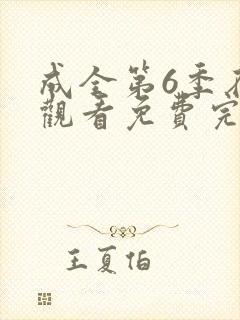 成全第6季
觀看免費完
王夏伯